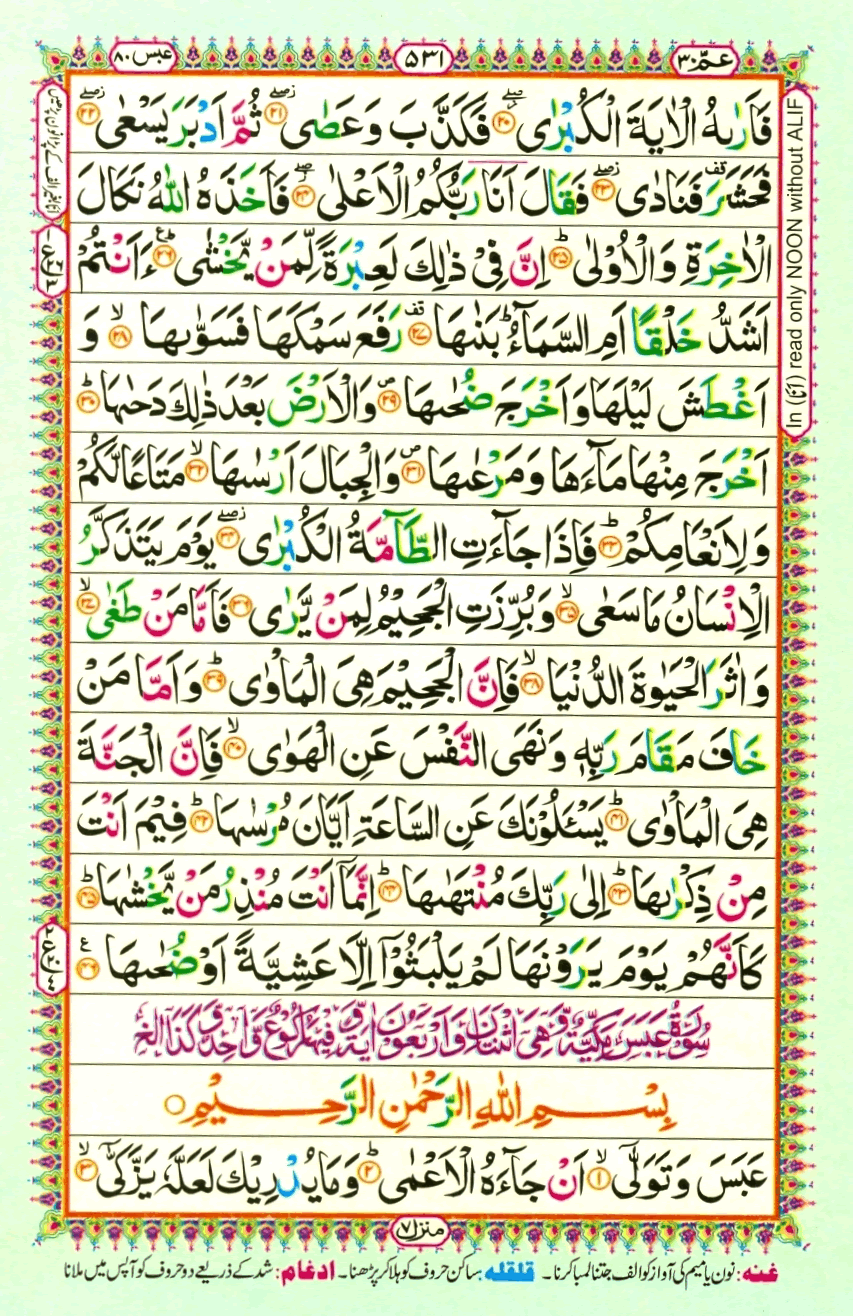 عمّ ٣٠
٥٣١
عبس ٨٠
فَاَرٰىهُ الْاٰيَةَ الْكُبْرٰى ﴿٢٠﴾ فَكَذَّبَ وَعَصٰى ﴿٢١﴾ ثُمَّ اَدْبَرَ يَسْعٰى ﴿٢٢﴾
فَحَشَرَ فَنَادٰى ﴿٢٣﴾ فَقَالَ اَنَا رَبُّكُمُ الْاَعْلٰى ﴿٢٤﴾ فَاَخَذَهُ اللّٰهُ نَكَالَ
الْاٰخِرَةِ وَالْاُوْلٰى ﴿٢٥﴾ اِنَّ فِيْ ذٰلِكَ لَعِبْرَةً لِّمَنْ يَّخْشٰى ﴿٢٦﴾ ءَاَنْتُمْ
اَشَدُّ خَلْقًا اَمِ السَّمَآءُ ؕ بَنٰىهَا ﴿٢٧﴾ رَفَعَ سَمْكَهَا فَسَوّٰىهَا ﴿٢٨﴾ وَ
اَغْطَشَ لَيْلَهَا وَاَخْرَجَ ضُحٰىهَا ﴿٢٩﴾ وَالْاَرْضَ بَعْدَ ذٰلِكَ دَحٰىهَا ﴿٣٠﴾
اَخْرَجَ مِنْهَا مَآءَهَا وَمَرْعٰىهَا ﴿٣١﴾ وَالْجِبَالَ اَرْسٰىهَا ﴿٣٢﴾ مَتَاعًا لَّكُمْ
وَلِاَنْعَامِكُمْ ﴿٣٣﴾ فَاِذَا جَآءَتِ الطَّآمَّةُ الْكُبْرٰى ﴿٣٤﴾ يَوْمَ يَتَذَكَّرُ
الْاِنْسَانُ مَا سَعٰى ﴿٣٥﴾ وَبُرِّزَتِ الْجَحِيْمُ لِمَنْ يَّرٰى ﴿٣٦﴾ فَاَمَّا مَنْ طَغٰى ﴿٣٧﴾
وَاٰثَرَ الْحَيٰوةَ الدُّنْيَا ﴿٣٨﴾ فَاِنَّ الْجَحِيْمَ هِيَ الْمَاْوٰى ﴿٣٩﴾ وَاَمَّا مَنْ
خَافَ مَقَامَ رَبِّهٖ وَنَهَى النَّفْسَ عَنِ الْهَوٰى ﴿٤٠﴾ فَاِنَّ الْجَنَّةَ
هِيَ الْمَاْوٰى ﴿٤١﴾ يَسْـَٔلُوْنَكَ عَنِ السَّاعَةِ اَيَّانَ مُرْسٰىهَا ﴿٤٢﴾ فِيْمَ اَنْتَ
مِنْ ذِكْرٰىهَا ﴿٤٣﴾ اِلٰى رَبِّكَ مُنْتَهٰىهَا ﴿٤٤﴾ اِنَّمَآ اَنْتَ مُنْذِرُ مَنْ يَّخْشٰىهَا ﴿٤٥﴾
كَاَنَّهُمْ يَوْمَ يَرَوْنَهَا لَمْ يَلْبَثُوْٓا اِلَّا عَشِيَّةً اَوْ ضُحٰىهَا ﴿٤٦﴾
سُوْرَةُ عَبَسَ مَكِّيَّةٌ وَّهِيَ اثْنَتَانِ وَاَرْبَعُوْنَ اٰيَةً وَّفِيْهَا رُكُوْعٌ وَّاحِدٌ
بِسْمِ اللّٰهِ الرَّحْمٰنِ الرَّحِيْمِ
عَبَسَ وَتَوَلّٰىٓ ﴿١﴾ اَنْ جَآءَهُ الْاَعْمٰى ﴿٢﴾ وَمَا يُدْرِيْكَ لَعَلَّهٗ يَزَّكّٰىٓ ﴿٣﴾
منزل ٧
غنه: نون یا میم کی آواز کو الف جتنا لمبا کرنا۔ قلقله: ساکن حروف کو ہلا کر پڑھنا۔ ادغام: شد کے ذریعے دو حروف کو آپس میں ملانا
In (اَنَا) read only NOON without ALIF